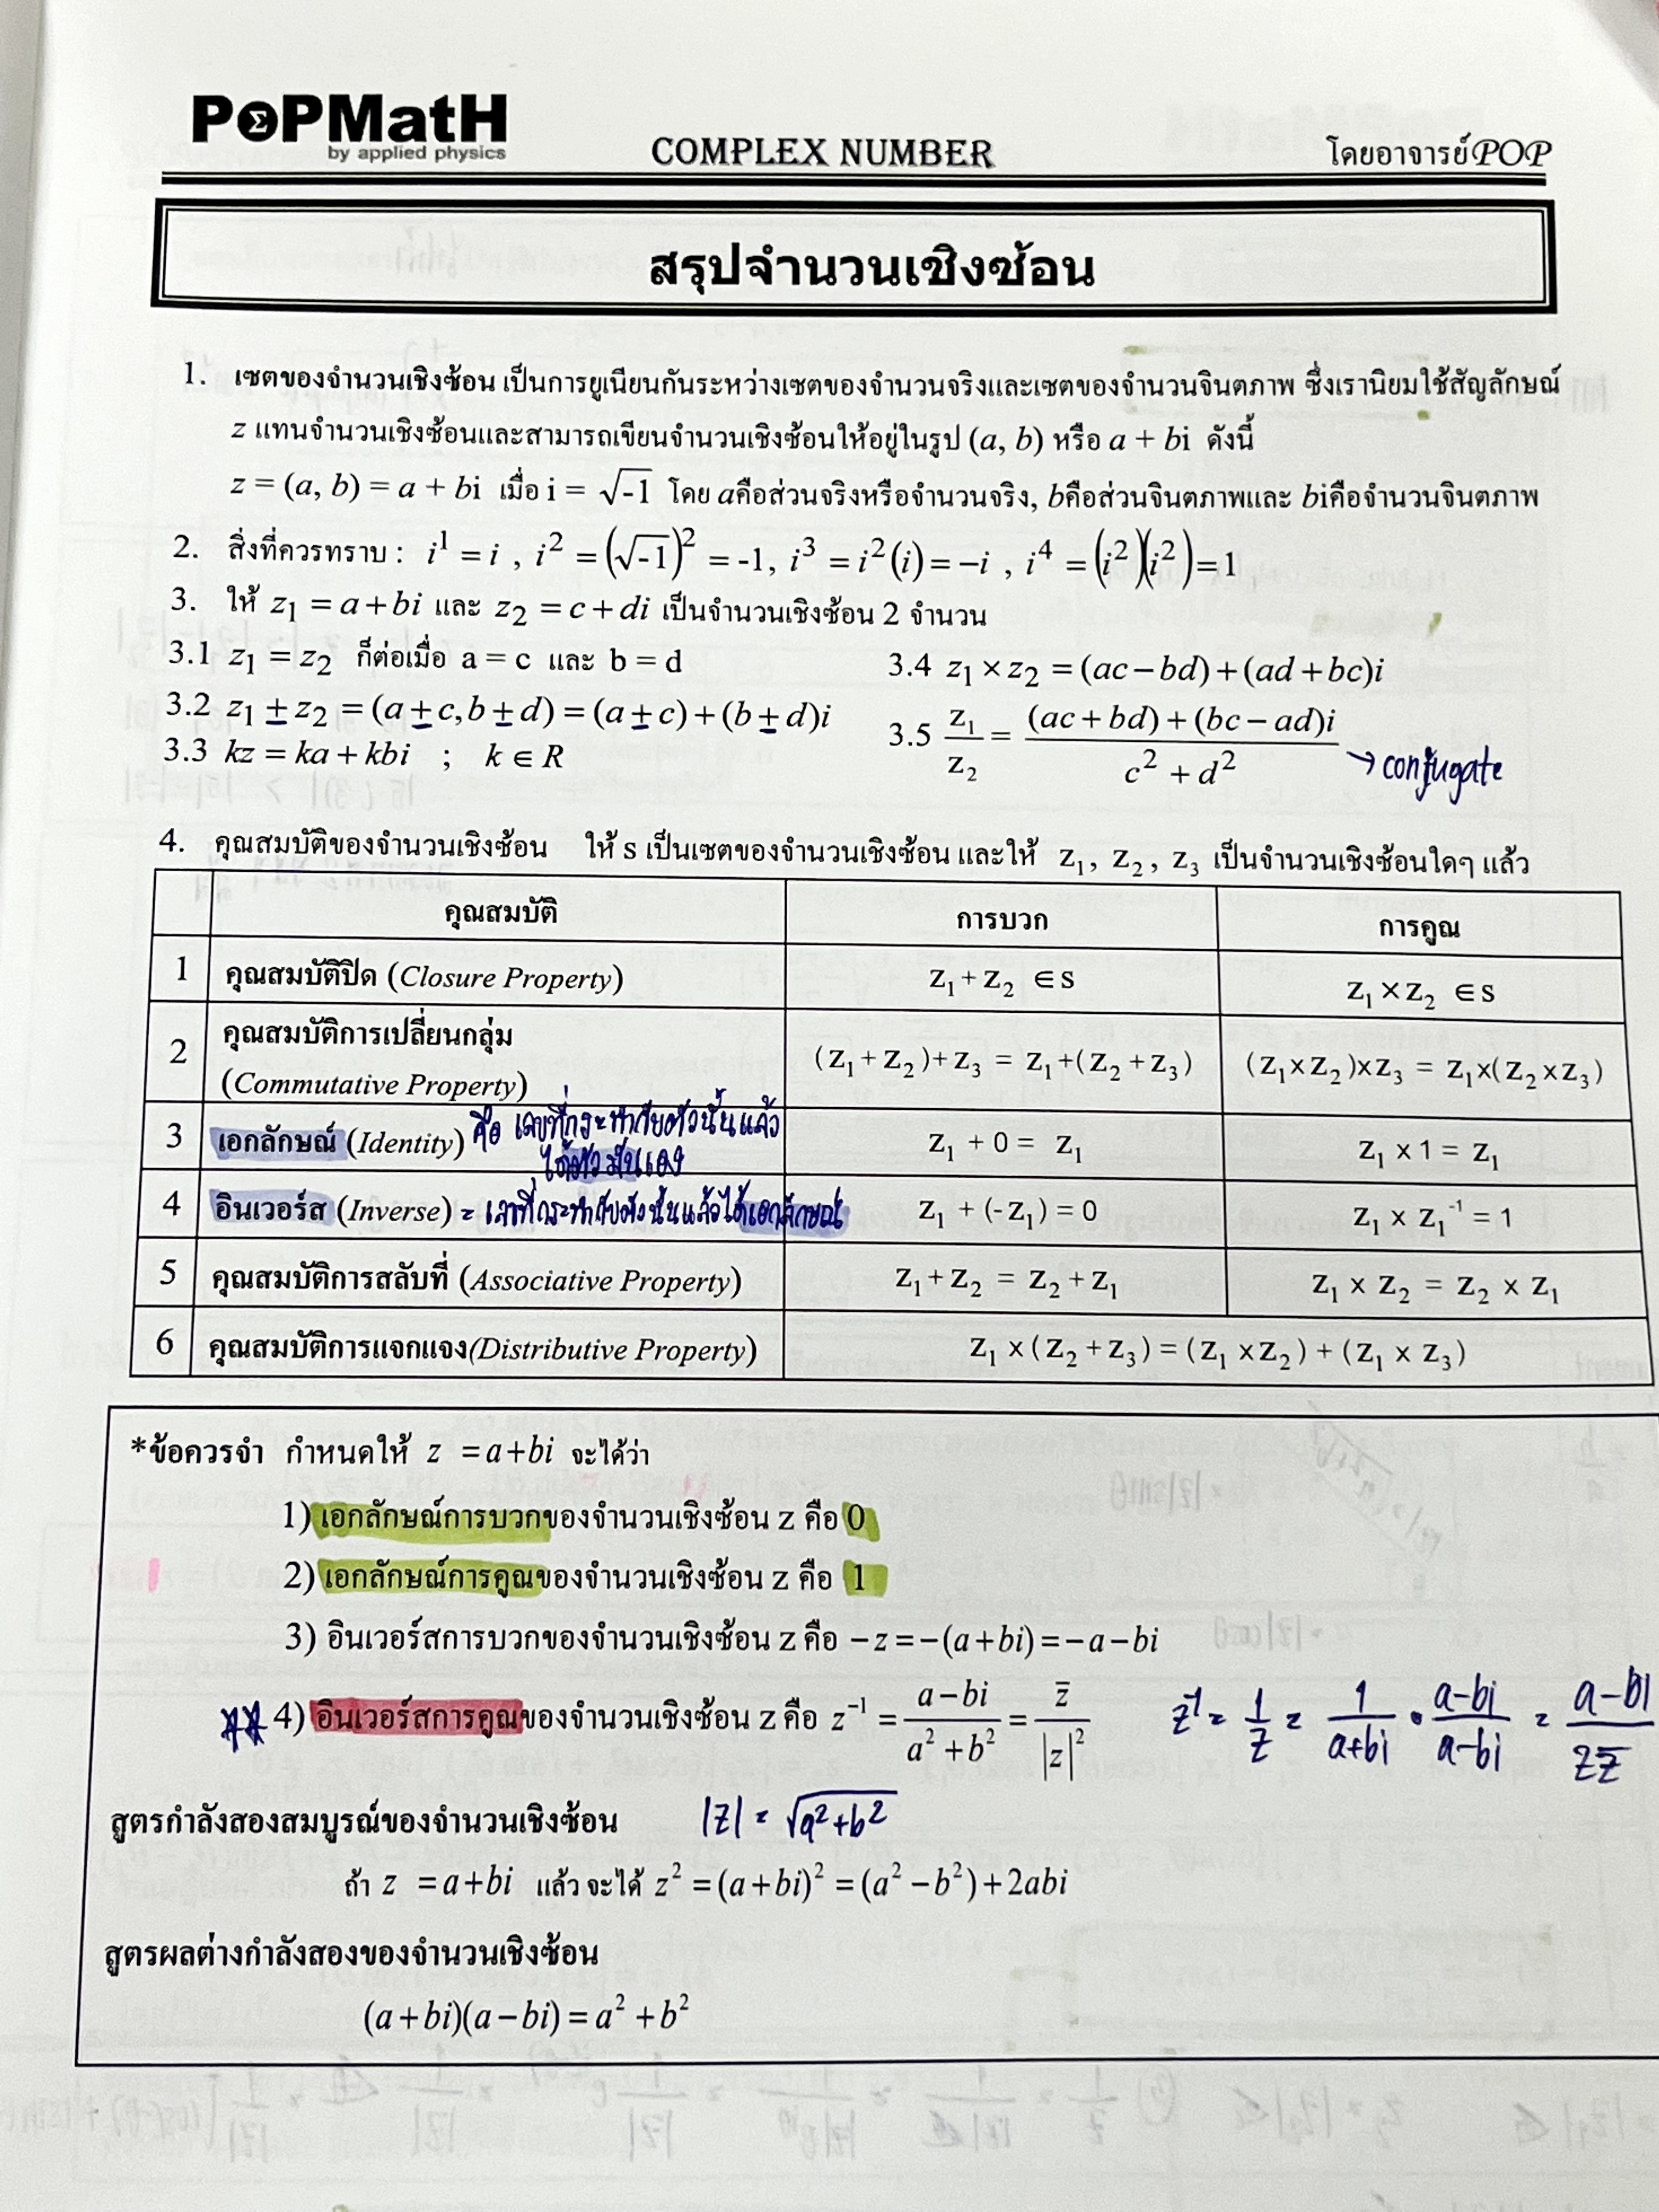 PoPMatH
by applied physics
COMPLEX NUMBER
โดยอาจารย์POP
สรุปจำนวนเชิงซ้อน
1. เซตของจำนวนเชิงซ้อน เป็นการยูเนียนกันระหว่างเซตของจำนวนจริงและเซตของจำนวนจินตภาพ ซึ่งเรานิยมใช้สัญลักษณ์
z แทนจำนวนเชิงซ้อนและสามารถเขียนจำนวนเชิงซ้อนให้อยู่ในรูป (a, b) หรือ a + bi ดังนี้
z = (a, b) = a + bi เมื่อ i = √-1 โดย aคือส่วนจริงหรือจำนวนจริง, bคือส่วนจินตภาพและ biคือจำนวนจินตภาพ
2. สิ่งที่ควรทราบ : i¹ = i , i² = (√-1)² = -1, i³ = i²(i) = −i , i⁴ = (i²)(i²) = 1
3. ให้ z₁ = a+bi และ z₂ = c+di เป็นจำนวนเชิงซ้อน 2 จำนวน
3.1 z₁ = z₂ ก็ต่อเมื่อ a = c และ b = d
3.2 z₁ ± z₂ = (a±c, b±d) = (a±c)+(b±d)i
3.3 kz = ka + kbi ; k ∈ R
3.4 z₁ × z₂ = (ac−bd)+(ad+bc)i
3.5 z₁/z₂ = ((ac+bd)+(bc−ad)i)/(c² + d²) → conjugate
4. คุณสมบัติของจำนวนเชิงซ้อน ให้ s เป็นเซตของจำนวนเชิงซ้อน และให้ z₁, z₂, z₃ เป็นจำนวนเชิงซ้อนใดๆ แล้ว
คุณสมบัติ การบวก การคูณ
1 คุณสมบัติปิด (Closure Property) z₁+z₂ ∈ s z₁×z₂ ∈ s
2 คุณสมบัติการเปลี่ยนกลุ่ม
(Commutative Property) (z₁+z₂)+z₃ = z₁+(z₂+z₃) (z₁×z₂)×z₃ = z₁×(z₂×z₃)
3 เอกลักษณ์ (Identity) คือ เลขที่กระทำกับตัวนั้นแล้ว z₁ + 0 = z₁ z₁ × 1 = z₁
ได้ตัวมันเอง
4 อินเวอร์ส (Inverse) = เลขที่กระทำกับตัวนั้นแล้วได้เอกลักษณ์ z₁ + (-z₁) = 0 z₁ × z₁⁻¹ = 1
5 คุณสมบัติการสลับที่ (Associative Property) z₁+z₂ = z₂+z₁ z₁ × z₂ = z₂ × z₁
6 คุณสมบัติการแจกแจง(Distributive Property) z₁ ×(z₂+z₃) = (z₁ ×z₂) + (z₁ × z₃)
*ข้อควรจำ กำหนดให้ z = a+bi จะได้ว่า
1) เอกลักษณ์การบวกของจำนวนเชิงซ้อน z คือ 0
2) เอกลักษณ์การคูณของจำนวนเชิงซ้อน z คือ 1
3) อินเวอร์สการบวกของจำนวนเชิงซ้อน z คือ −z = −(a+bi) = −a−bi
** 4) อินเวอร์สการคูณของจำนวนเชิงซ้อน z คือ z⁻¹ = (a−bi)/(a²+b²) = z̄/|z|² z⁻¹ = 1/z = 1/(a+bi) • (a-bi)/(a-bi) = (a-bi)/(zz̄)
สูตรกำลังสองสมบูรณ์ของจำนวนเชิงซ้อน |z| = √(a²+b²)
ถ้า z = a+bi แล้ว จะได้ z² = (a+bi)² = (a²−b²)+2abi
สูตรผลต่างกำลังสองของจำนวนเชิงซ้อน
(a+bi)(a−bi) = a²+b²